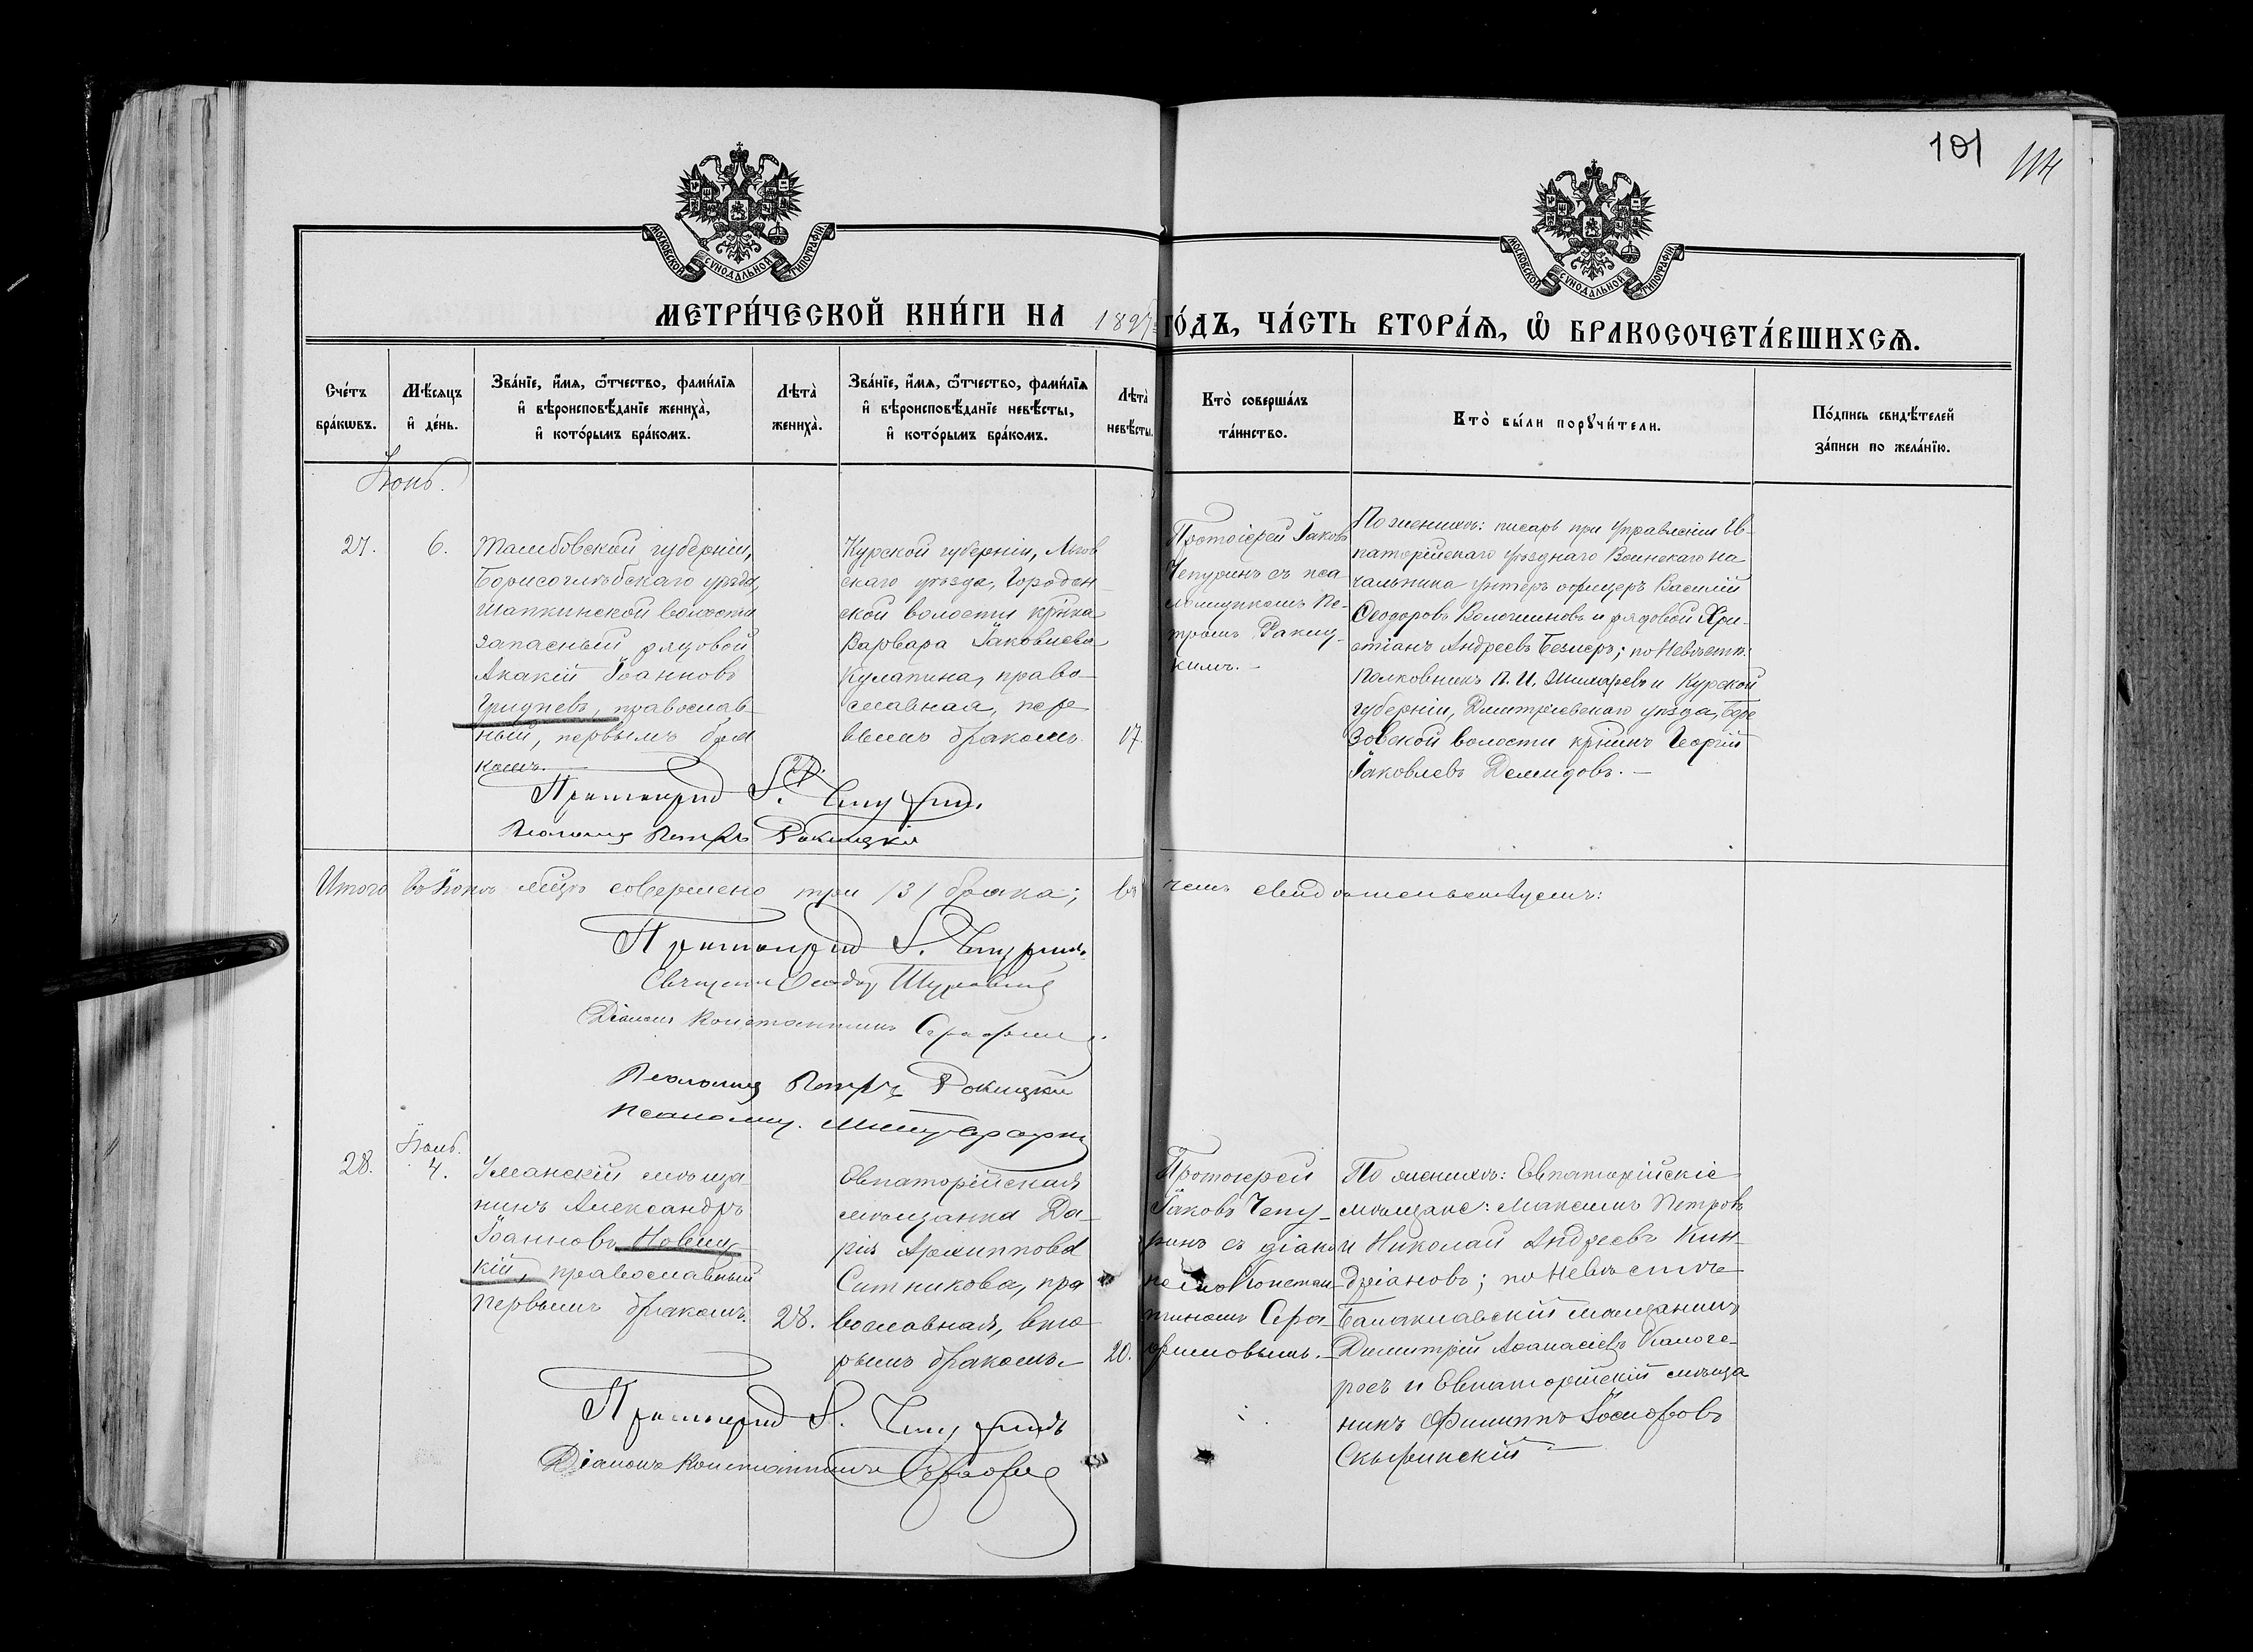 101
114
МОСКОВСКОЙ СѴНОДАЛЬНОЙ ТИПОГРАФІИ
МОСКОВСКОЙ СѴНОДАЛЬНОЙ ТИПОГРАФІИ
МЕТРИ́ЧЕСКОЙ КНИ́ГИ НА 1897 ГО́ДЪ, ЧА́СТЬ ВТОРА́Ѧ, Ѡ҆ БРАКОСОЧЕТА́ВШИХСѦ.
Сче́тъ
бра́кѡвъ.
Мѣ́сѧцъ
и҆ де́нь.
Зва́нїе, и҆́мѧ, ѻ҆́тчество, фами́лїѧ
и҆ вѣроисповѣ́данїе жениха̀,
и҆ кото́рымъ бра́комъ.
Лѣта̀
жениха̀.
Зва́нїе, и҆́мѧ, ѻ҆́тчество, фами́лїѧ
и҆ вѣроисповѣ́данїе невѣ́сты,
и҆ кото́рымъ бра́комъ.
Лѣта̀
невѣ́сты.
Кто̀ соверша́лъ
та́инство.
Кто̀ бы́ли порꙋчи́тели.
По́дпись свидѣ́телей
за́писи по жела́нїю.
Іюнь.
27.
6.
Тамбовской губерніи,
Борисоглѣбскаго уѣзда,
Шапкинской волости
запасный рядовой
Акакій Іоанновъ
Гридневъ, православ-
ный, первымъ бра
комъ.
27.
Курской губерніи, Льгов
скаго уѣзда, Городен
ской волости кр-нка
Варвара Іаковлева
Кулагина, право-
славная, пер
вымъ бракомъ.
17.
Протоіерей Іаковъ
Чепуринъ съ пса
ломщикомъ Пе-
тромъ Ракиц-
кимъ.
По женихѣ: писарь при Управленіи Ев-
паторійскаго Уѣзднаго Воинскаго На
чальника унтеръ офицеръ Василій
Ѳеодоровъ Волошиновъ и рядовой Хри-
стіанъ Андреевъ Безлеръ; по Невѣстѣ:
Полковникъ П. И. Шихаревъ и Курской
губерніи, Дмитріевскаго уѣзда, Бере
зовской волости кр-нинъ Георгій
Іаковлевъ Демидовъ.
Протоіерей І. Чепуринъ.
Псаломщ Петръ Ракицкій
Итого въ Іюнѣ м-цѣ совершено три /3/ брака; въ чемъ свидѣтельствуемъ:
Протоіерей І. Чепуринъ.
Священ. Ѳеодор
Діаконъ Константинъ Серафим
Псаломщ Петръ Ракицкій
Псаломщ.
Іюль.
28.
4.
Уманскій мѣща
нинъ Александръ
Іоанновъ Новиц-
кій, православный
первымъ бракомъ.
28.
Евпаторійская
мѣщанка Да-
рія Архиппова
Ситникова, пра
вославная, вто-
рымъ бракомъ
20.
Протоіерей
Іаковъ Чепу-
ринъ съ діако
номъ Констан
тиномъ Сера-
фимовымъ.
По женихѣ: Евпаторійскіе
мѣщане: Максимъ Петровъ
и Николай Андреевъ Кин-
дріановъ; по Невѣстѣ
Балаклавскій мѣщанинъ
Димитрій Аѳанасіевъ Калоге-
росъ и Евпаторійскій мѣща
нинъ Филиппъ Іосифовъ
Скыринскій
Протоіерей І. Чепуринъ
Діаконъ Константинъ Серафим